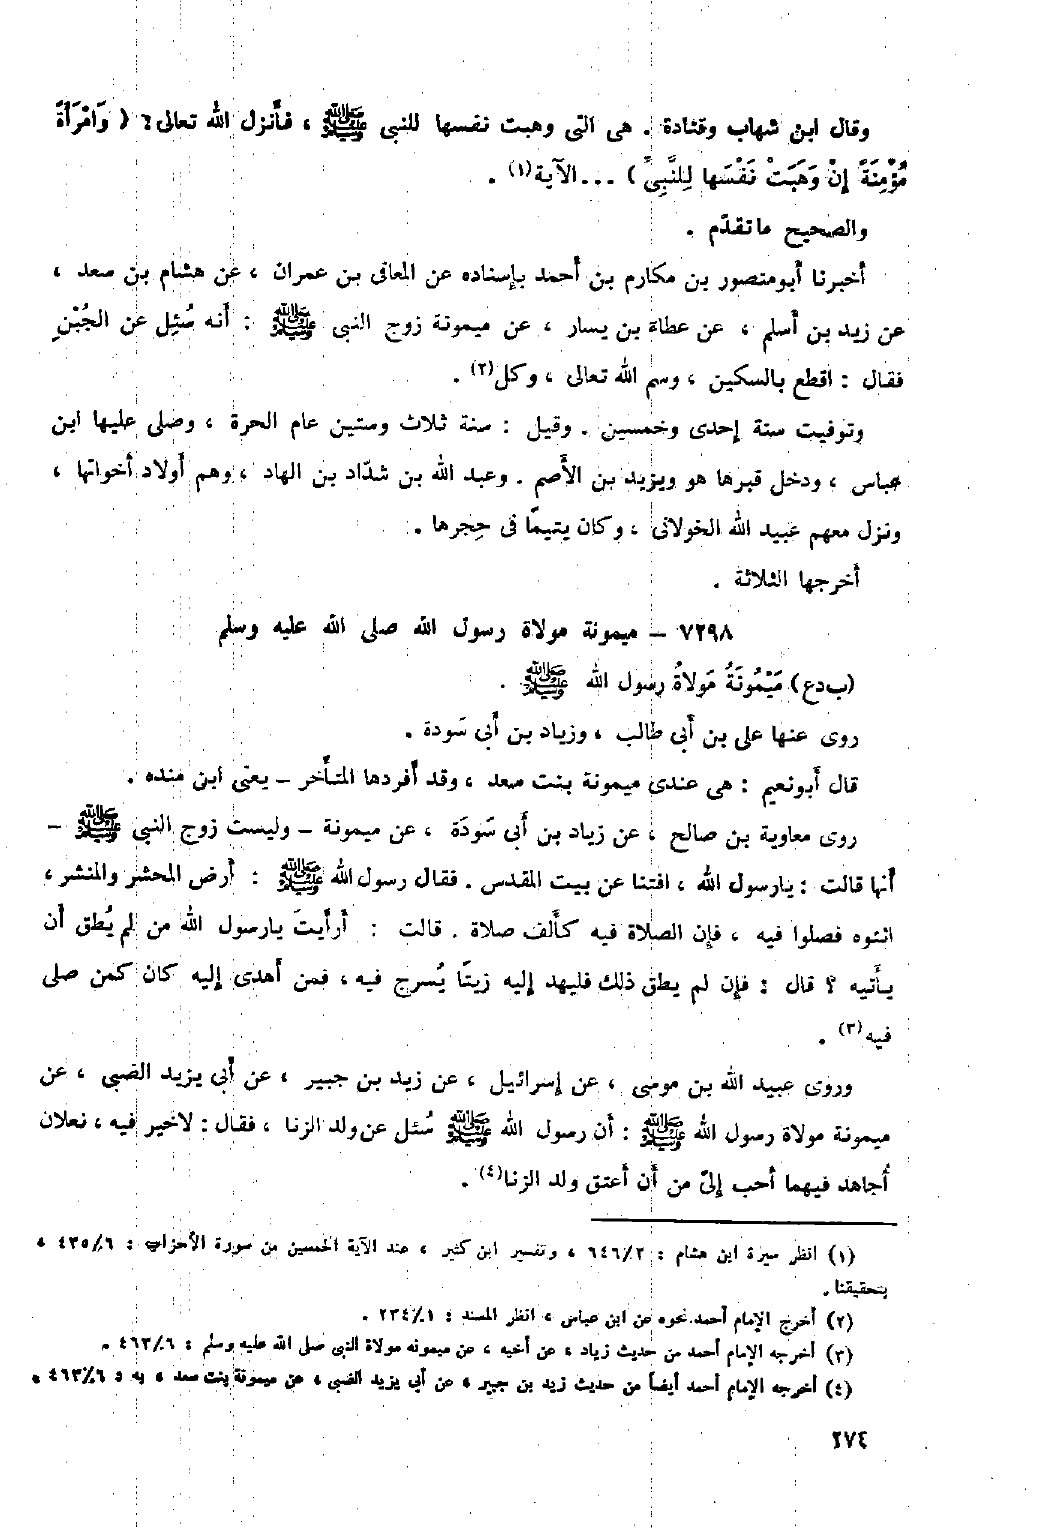 وقال ابن شهاب وقتادة . هى التى وهبت نفسها للنبى ﷺ ، فأَنزل الله تعالى : ( وَامْرَأَةً
مُؤْمِنَةً إِنْ وَهَبَتْ نَفْسَهَا لِلنَّبِىِّ ) ... الآية(١) .
والصحيح ما تقدّم .
أخبرنا أبو منصور بن مكارم بن أحمد بإسناده عن المعافى بن عمران ، عن هشام بن سعد ،
عن زيد بن أسلم ، عن عطاء بن يسار ، عن ميمونة زوج النبى ﷺ : أنه سُئِل عن الجُبْنِ
فقال : اقطع بالسكين ، وسم الله تعالى ، وكل(٢) .
وتوفيت سنة إحدى وخمسين . وقيل : سنة ثلاث وستين عام الحرة ، وصلى عليها ابن
عباس ، ودخل قبرها هو ويزيد بن الأَصم . وعبد الله بن شدّاد بن الهاد ، وهم أولاد أخواتها ،
ونزل معهم عبيد الله الخولانى ، وكان يتيمًا فى حِجرها .
أخرجها الثلاثة .
٧٢٩٨ – ميمونة مولاة رسول الله صلى الله عليه وسلم
(ب د ع) مَيْمُونَةُ مَولاةُ رسول الله ﷺ .
روى عنها على بن أبى طالب ، وزياد بن أبى سَودة .
قال أبو نعيم : هى عندى ميمونة بنت سعد ، وقد أفردها المتأخر – يعنى ابن منده .
روى معاوية بن صالح ، عن زياد بن أبى سَودَة ، عن ميمونة – وليست زوج النبى ﷺ –
أنها قالت : يا رسول الله ، افتنا عن بيت المقدس . فقال رسول الله ﷺ : أرض المحشر والمنشر ،
ائتوه فصلوا فيه ، فإن الصلاة فيه كأَلف صلاة . قالت : أرأيتَ يا رسول الله من لم يُطق أن
يأتيه ؟ قال : فإن لم يطق ذلك فليهد إليه زيتًا يُسرج فيه ، فمن أهدى إليه كان كمن صلى
فيه(٣) .
وروى عبيد الله بن موسى ، عن إسرائيل ، عن زيد بن جبير ، عن أبى يزيد الضبى ، عن
ميمونة مولاة رسول الله ﷺ : أن رسول الله ﷺ سُئل عن ولد الزنا ، فقال : لا خير فيه ، نعلان
أُجاهد فيهما أحب إلىّ من أن أعتق ولد الزنا(٤) .
(١) انظر سيرة ابن هشام : ٦٤٦/٢ ، وتفسير ابن كثير ، عند الآية الخمسين من سورة الأحزاب : ٤٣٥/٦ ،
بتحقيقنا .
(٢) أخرج الإمام أحمد نحوه عن ابن عباس ، انظر المسند : ٢٣٤/١ .
(٣) أخرجه الإمام أحمد من حديث زياد ، عن أخيه ، عن ميمونه مولاة النبى صلى الله عليه وسلم : ٤٦٣/٦ .
(٤) أخرجه الإمام أحمد أيضاً من حديث زيد بن جبير ، عن أبي يزيد الضبى ، عن ميمونة بنت سعد ، به : ٤٦٣/٦ .
٢٧٤